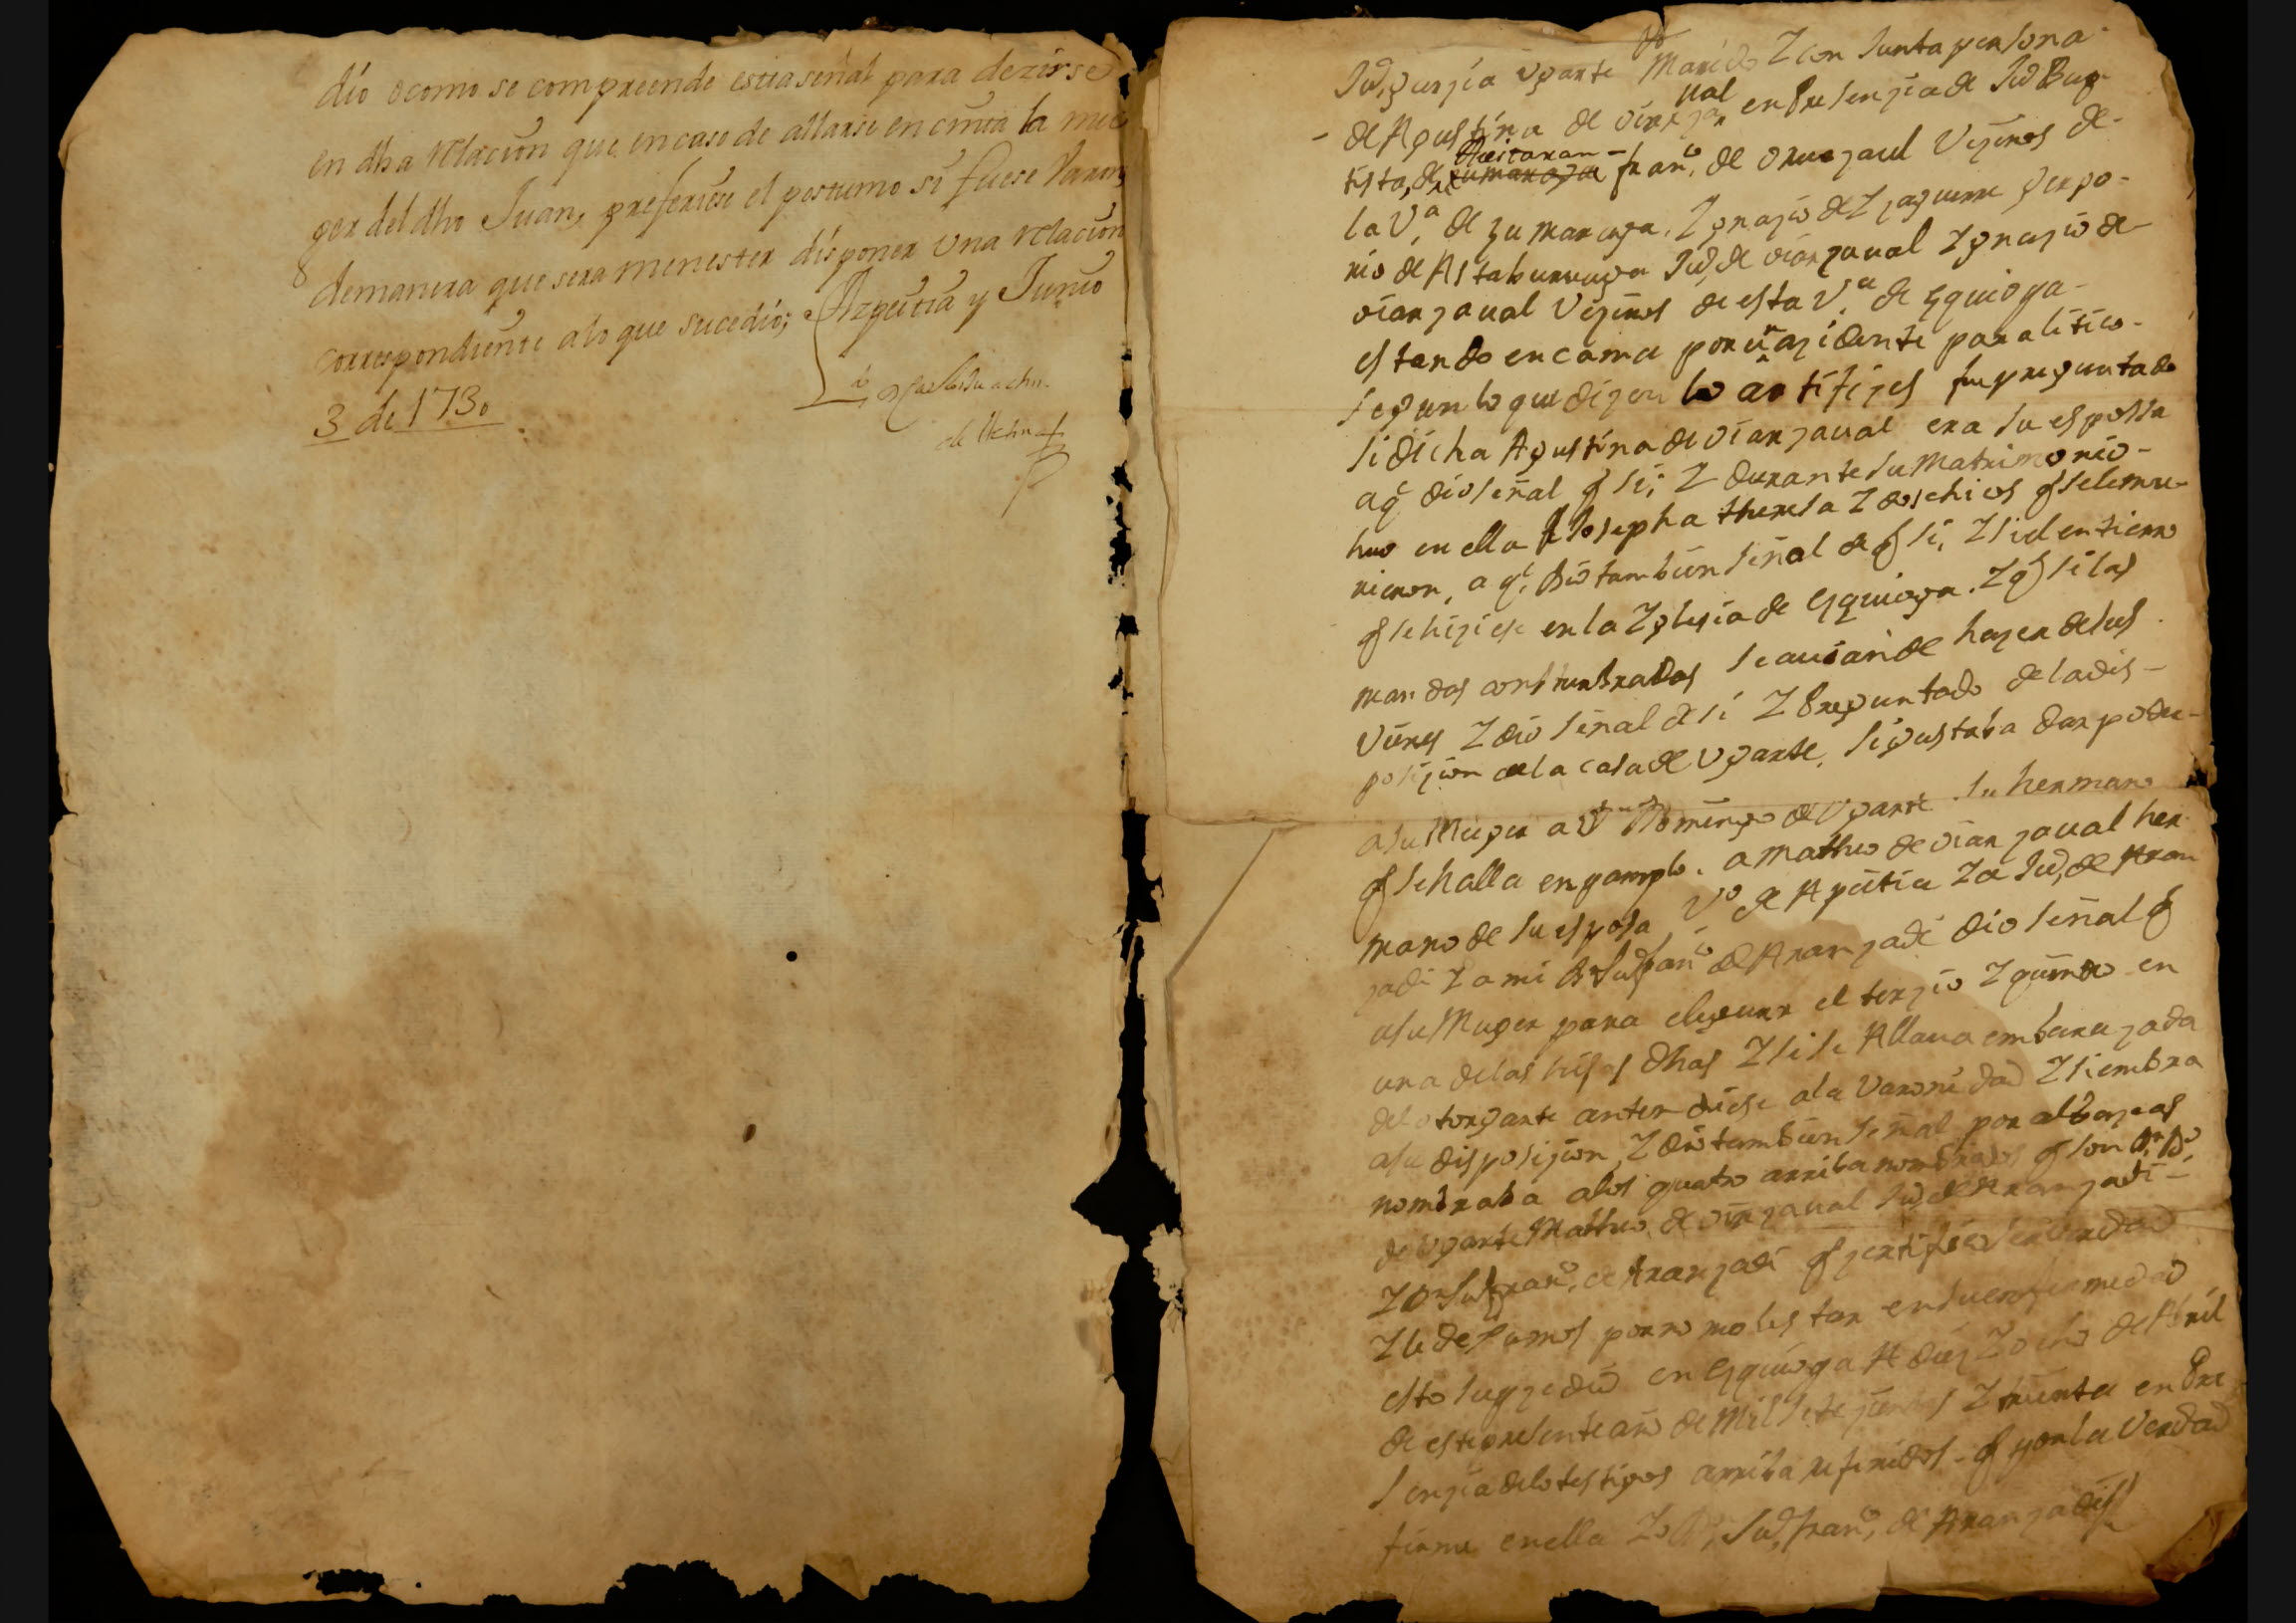 dio o como se compreende esta señal para dezirse
en dha relacion que en caso de allarse en cinta la mu
ger del dho Juan, prefiriese el postumo si fuese Varon,
demanera que sera menester disponer una relacion
correspondiente alo que sucedió; Azpeitia y Junio
3 de 1730
Ju,, garzia ugarte Marido Z con Junta persona
de Agustina de oiarzaual en Presenzia de Ju Bap
tista, de fran,co de oruezaul Vezinos de
la V.a de zumarraga. Ygnazio de Yzaguirre Yer po
nio de Astaburuaga Ju,, de oiarzaual Ygnazio de
oiarzaual Vezinos de esta V.a de Ezquioga
estando en cama por un azidente paralitico
segun lo que dizen lo artifizes fue preguntado
si dicha Agustina de oiarzaual era su espossa
a q dio señal q si; Z durante su Matrimonio
huo en ella a Josepha theresa Z dos chicos q se le mu
rieron, a q.e dio tambien señal de q si, Z si el entierro
q se hiziese en la Yglesia de Ezquioga. Z q si las
mandas acostumbradas se auian de hazer de sus
Vienes Z dio señal de si Z Preguntado de la dis
posizion de la casa de Ugarte, si gustaba dar poder
a su Muger a Domingo de Ugarte su hermano
q se halla en pamplo. a Matheo de oiarzaual her
mano de su esposa V.o de Azpeitia Z a Ju,, de Aran
zadi Z a mi Ju fran.co de Aranzadi dio señal q
a su Muger para elegir el terzio Z quinto en
una de las hijas dhas Z si se Allaua embarazada
del otorgante antendiese a la Varonidad Z siembra
a su disposizion, Z dio tambien señal por albazeas
nombraba a los quatro arriba nombrados q son
de Ugarte Matheo de oiarzaual Ju,, de Aranzadi
Z Ju fran.co de Aranzadi q zertifico ser Verdad
Z le dejamos por no molestar en su enfermedad
esto suzedio en Ezquioga A diez Z ocho de Abril
de este presente año de Mil setezientos Z treinta en Pre
senzia de lo testigos arriba referidos. q por la Verdad
firme en ella Zo Ju,, fran.co de Aranzadi